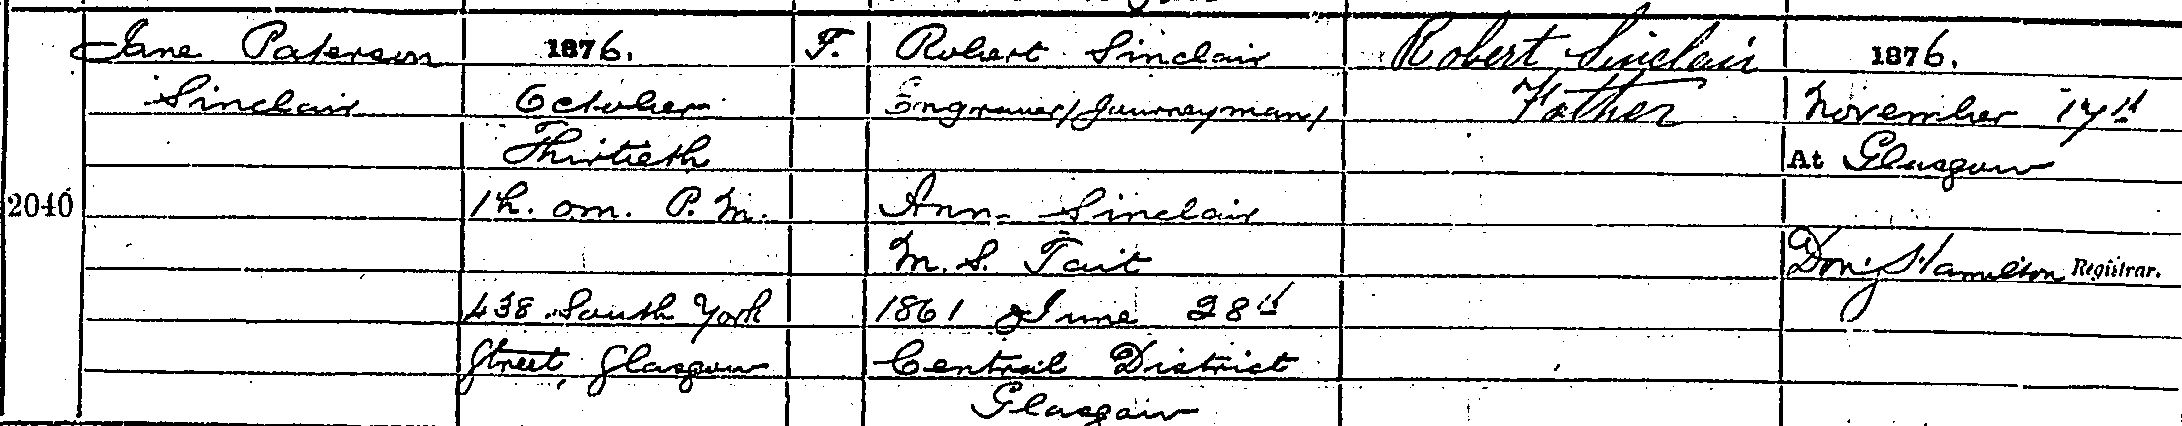 2040
Jane Paterson
Sinclair
1876.
October
Thirtieth
1h. 0m. P. M.
438 South York
Street, Glasgow
F.
Robert Sinclair
Engraver/Journeyman/
Ann Sinclair
M. S. Tait
1861 June 28th
Central District
Glasgow
Robert Sinclair
Father
1876.
November 17th
At Glasgow
Hamilton Registrar.